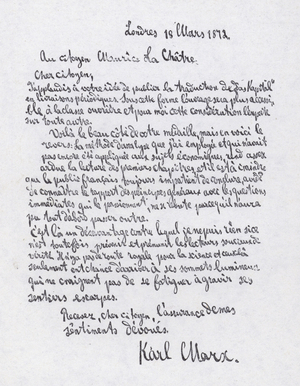 Londres 18 Mars 1872
Au citoyen Maurice La Châtre.
Cher citoyen,
J'applaudis à votre idée de publier la traduction de "Das Kapital"
en livraisons périodiques. Sous cette forme l'ouvrage sera plus accessi-
ble à la classe ouvrière et pour moi cette considération l'emporte
sur toute autre.
Voilà le beau côté de votre médaille, mais en voici le
revers: La méthode d'analyse que j'ai employée et qui n'avait
pas encore été appliquée aux sujets économiques, rend assez
ardue la lecture des premiers chapitres, et il est à craindre
que le public français toujours impatient de conclure, avide
de connaître le rapport des principes généraux avec les questions
immédiates qui le passionnent, ne se rebute parce qu'il n'aura
pu tout d'abord passer outre.
C'est là un désavantage contre lequel je ne puis rien si ce
n'est toutefois prévenir et prémunir les lecteurs soucieux de
vérité. Il n'y a pas de route royale pour la science et ceux-là
seulement ont chance d'arriver à ses sommets lumineux
qui ne craignent pas de se fatiguer à gravir ses
sentiers escarpés.
Recevez, cher citoyen, l'assurance de mes
sentiments dévoués.
Karl Marx.